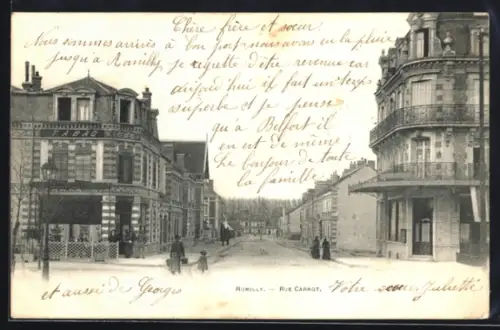 Chère frère et sœur
Nous sommes arrivés à bon port nous avons eu la pluie
jusqu'à Romilly je regrette d'être revenue car
aujourd'hui il fait un temps
superbe et je pense
qu'à Belfort il
en est de même
Le bonjour de toute
la famille
ROMILLY. — RUE CARNOT.
et aussi de Georges
Votre sœur Juliette